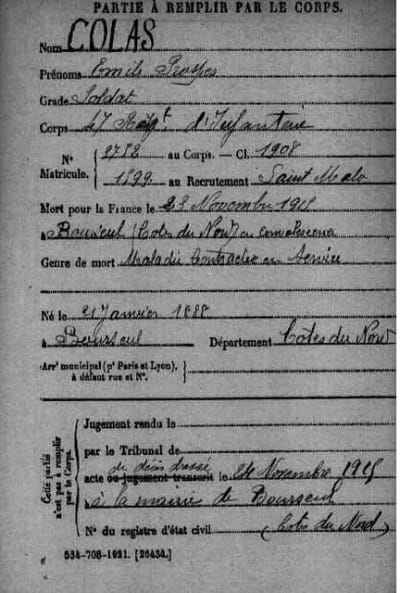 PARTIE À REMPLIR PAR LE CORPS.
Nom COLAS
Prénoms Emile
Grade Soldat
Corps 47 Régt. d'Infanterie
N° Matricule. { 2782 au Corps. — Cl. 1908
1599 au Recrutement Saint Malo
Mort pour la France le 23 Novembre 1915
à Bourseul (Cotes du Nord) en convalescence
Genre de mort Maladie contractée en service
Né le 21 Janvier 1888
à Bourseul Département Côtes du Nord
Arrt municipal (pr Paris et Lyon), à défaut rue et N°. }
Cette partie n'est pas à remplir par le Corps.
Jugement rendu le
par le Tribunal de
de décès dressé
acte ou jugement transcrit le 24 Novembre 1915
à la mairie de Bourseul
N° du registre d'état civil (Cotes du Nord)
534-708-1921. [26434.]